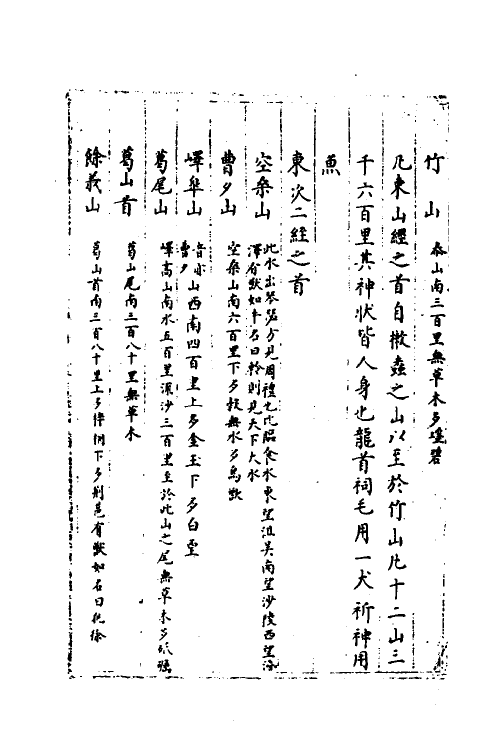 竹山 泰山南三百里無草木多瑶碧
凡東山經之首自樕䗤之山以至於竹山凡十二山三
千六百里其神狀皆人身也龍首祠毛用一犬祈神用
魚
東次二經之首
空桑山 此水出琴瑟方見周禮也北臨食水東望沮吳南望沙陵西望湣
澤有獸如牛名曰軨則見天下大水
曹夕山 空桑山南六百里下多榖無水多鳥獸
嶧皋山 音亦山西南四百里上多金玉下多白堊
曹夕
葛尾山 嶧高山南水五百里流沙三百里至於此山之尾無草木多砥礪
葛山首 葛山尾南三百八十里無草木
餘峩山 葛山首南三百八十里上多梓枏下多荆芑有獸如名曰犰狳